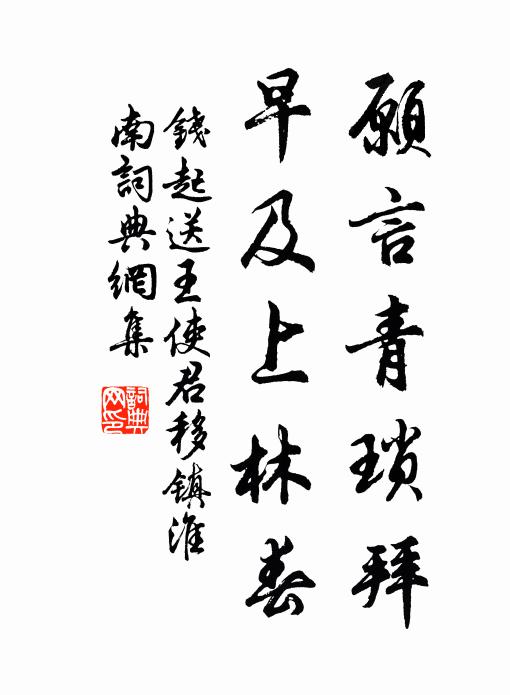 願言青瑣拜
早及上林春
錢起送王使君移鎮淮
南詞典網集
詞典
网印